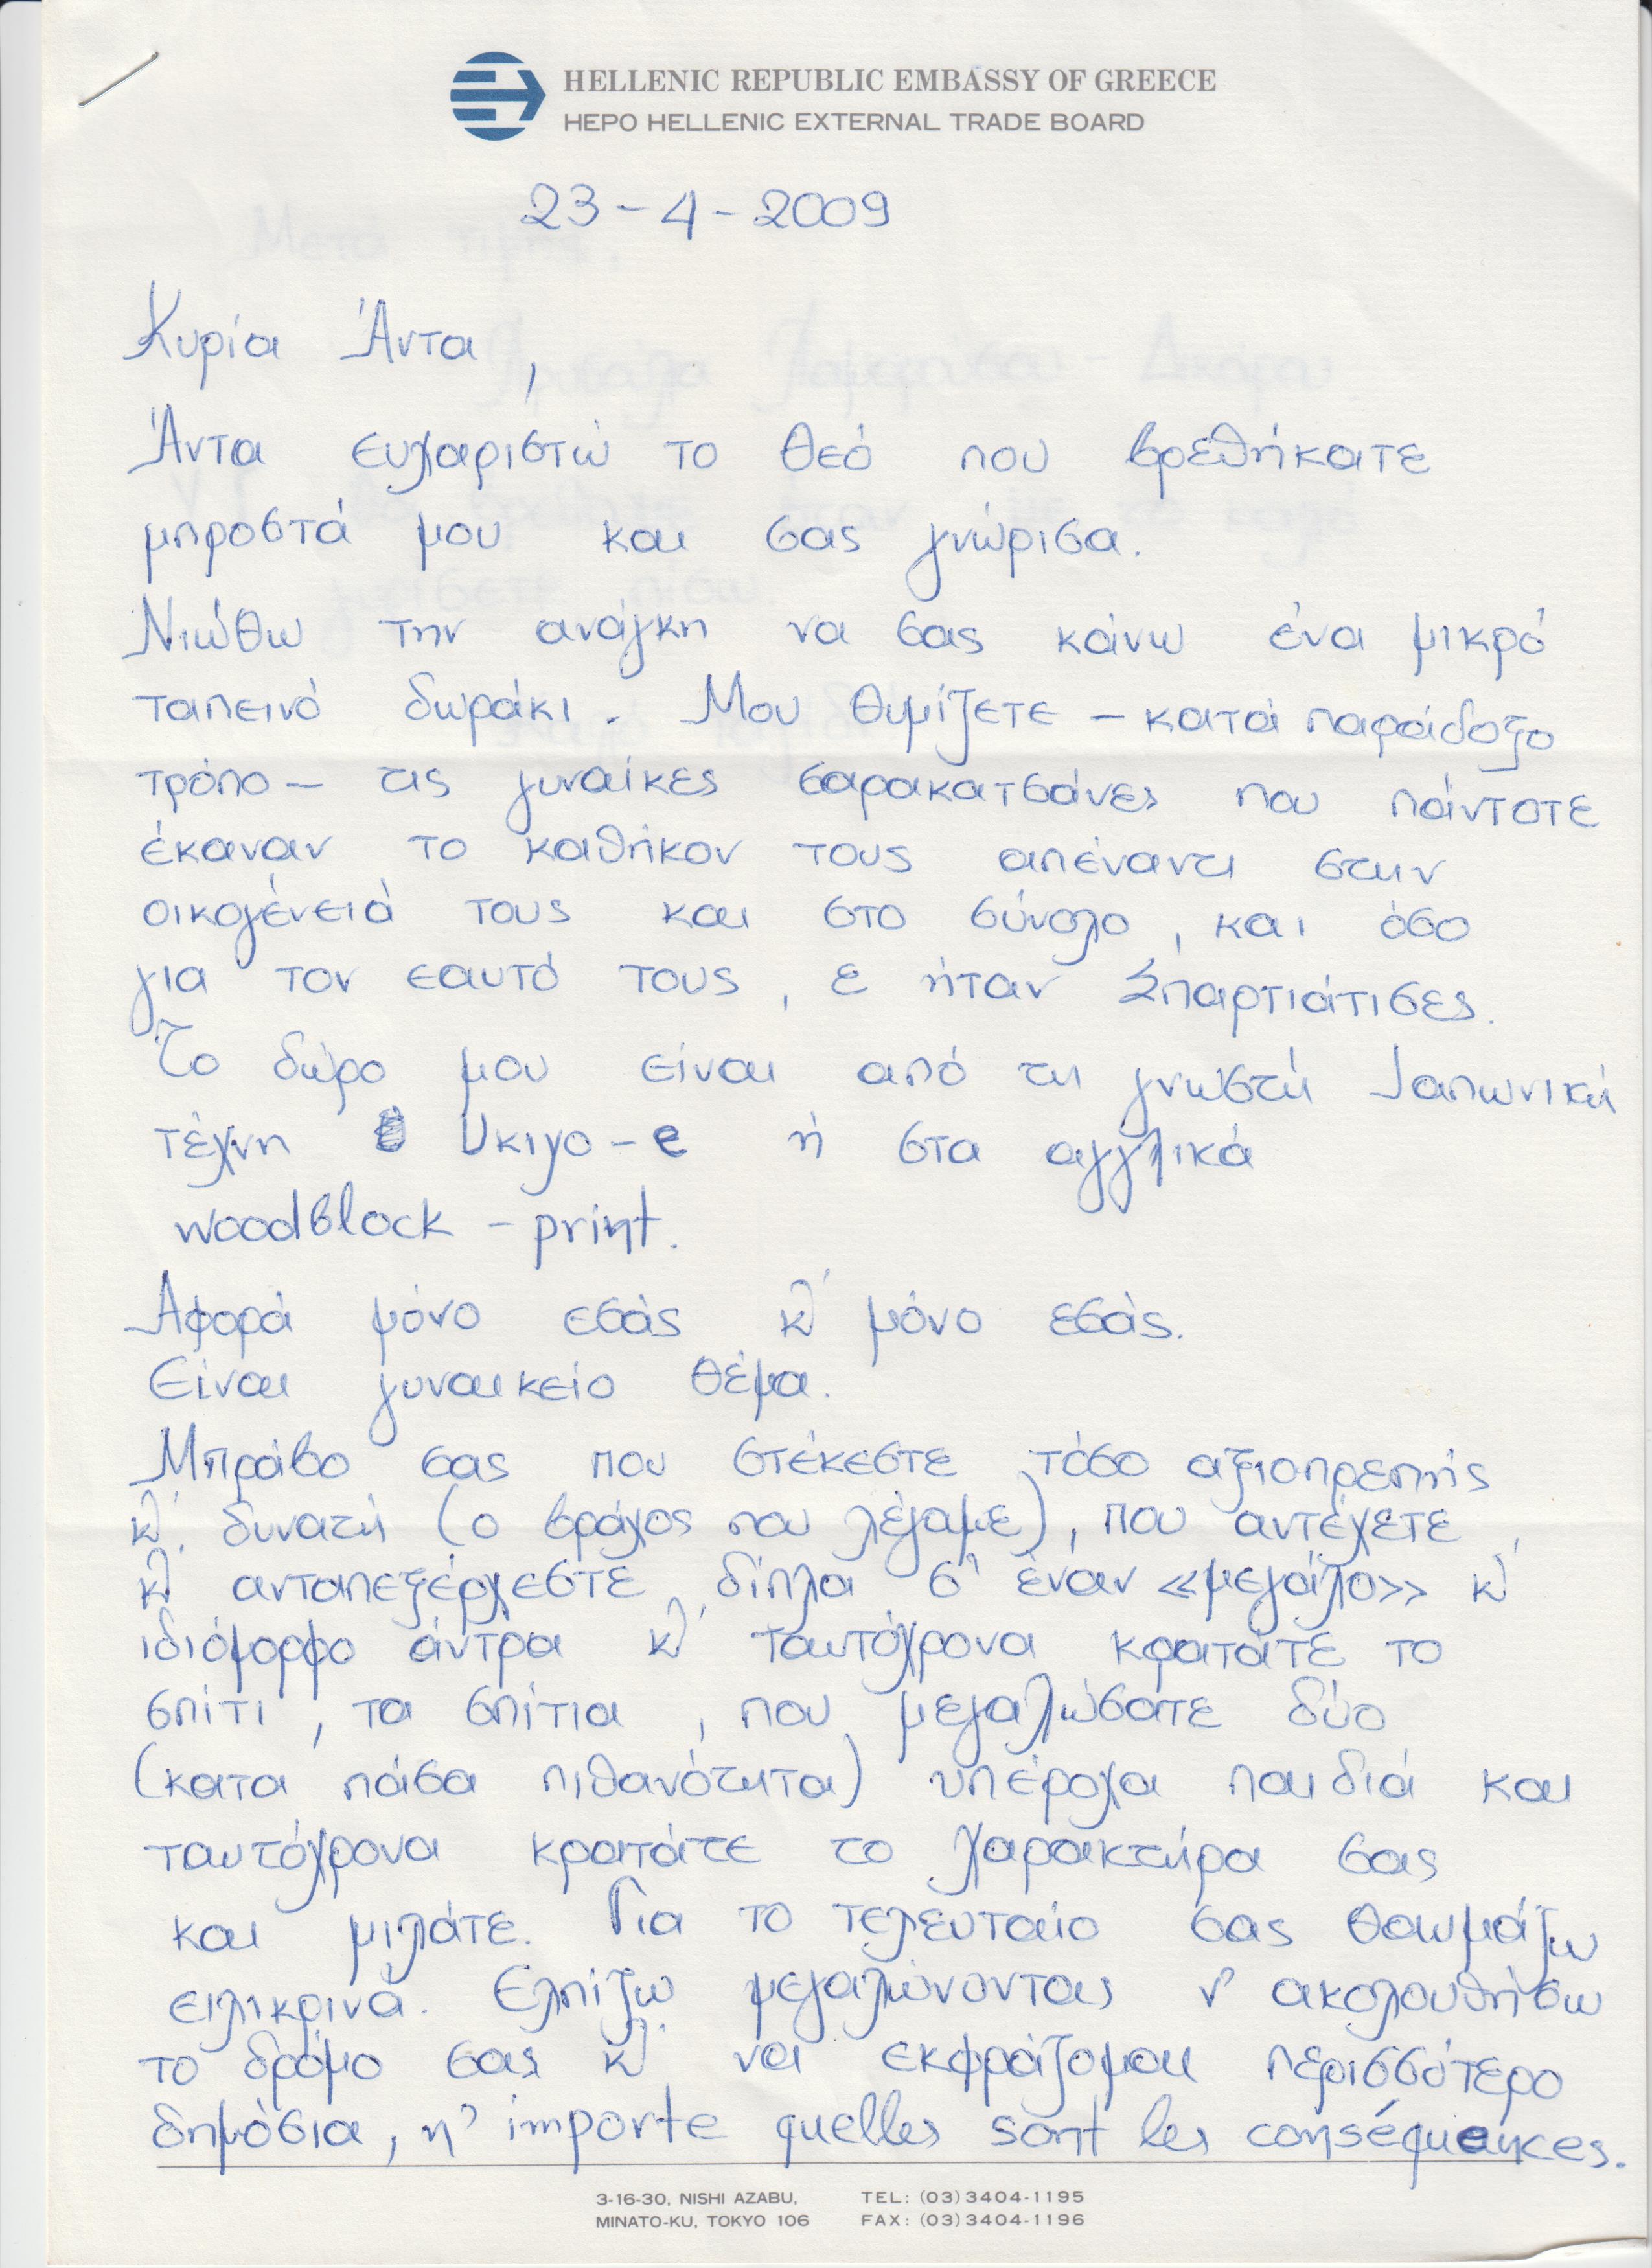 HELLENIC REPUBLIC EMBASSY OF GREECE
HEPO HELLENIC EXTERNAL TRADE BOARD
23-4-2009
Κυρία Άντα,
Άντα ευχαριστώ το Θεό που βρεθήκατε
μπροστά μου και σας γνώρισα.
Νιώθω την ανάγκη να σας κάνω ένα μικρό
ταπεινό δωράκι. Μου θυμίζετε – κατά παράδοξο
τρόπο – τις γυναίκες σαρακατσάνες που πάντοτε
έκαναν το καθήκον τους απέναντι στην
οικογένειά τους και στο σύνολο, και όσο
για τον εαυτό τους, ε ήταν Σπαρτιάτισες.
Το δώρο μου είναι από τη γνωστή Ιαπωνική
τέχνη Uκιγο-e ή στα αγγλικά
woodblock - print.
Αφορά μόνο εσάς κι' μόνο εσάς.
Είναι γυναικείο θέμα.
Μπράβο σας που στέκεστε τόσο αξιοπρεπής
κι' δυνατή (ο βράχος που λέγαμε), που αντέχετε
κι' ανταπεξέρχεστε δίπλα σ' έναν «μεγάλο» κι'
ιδιόμορφο άντρα κι' ταυτόχρονα κρατάτε το
σπίτι, τα σπίτια, που μεγαλώσατε δύο
(κατα πάσα πιθανότητα) υπέροχα παιδιά και
ταυτόχρονα κρατάτε το χαρακτήρα σας
και μιλάτε. Για το τελευταίο σας θαυμάζω
ειλικρινά. Ελπίζω μεγαλώνοντας ν' ακολουθήσω
το δρόμο σας κι' να εκφράζομαι περισσότερο
δημόσια, n' importe quelles sont les conséquences.
3-16-30, NISHI AZABU, TEL: (03)3404-1195
MINATO-KU, TOKYO 106 FAX: (03)3404-1196